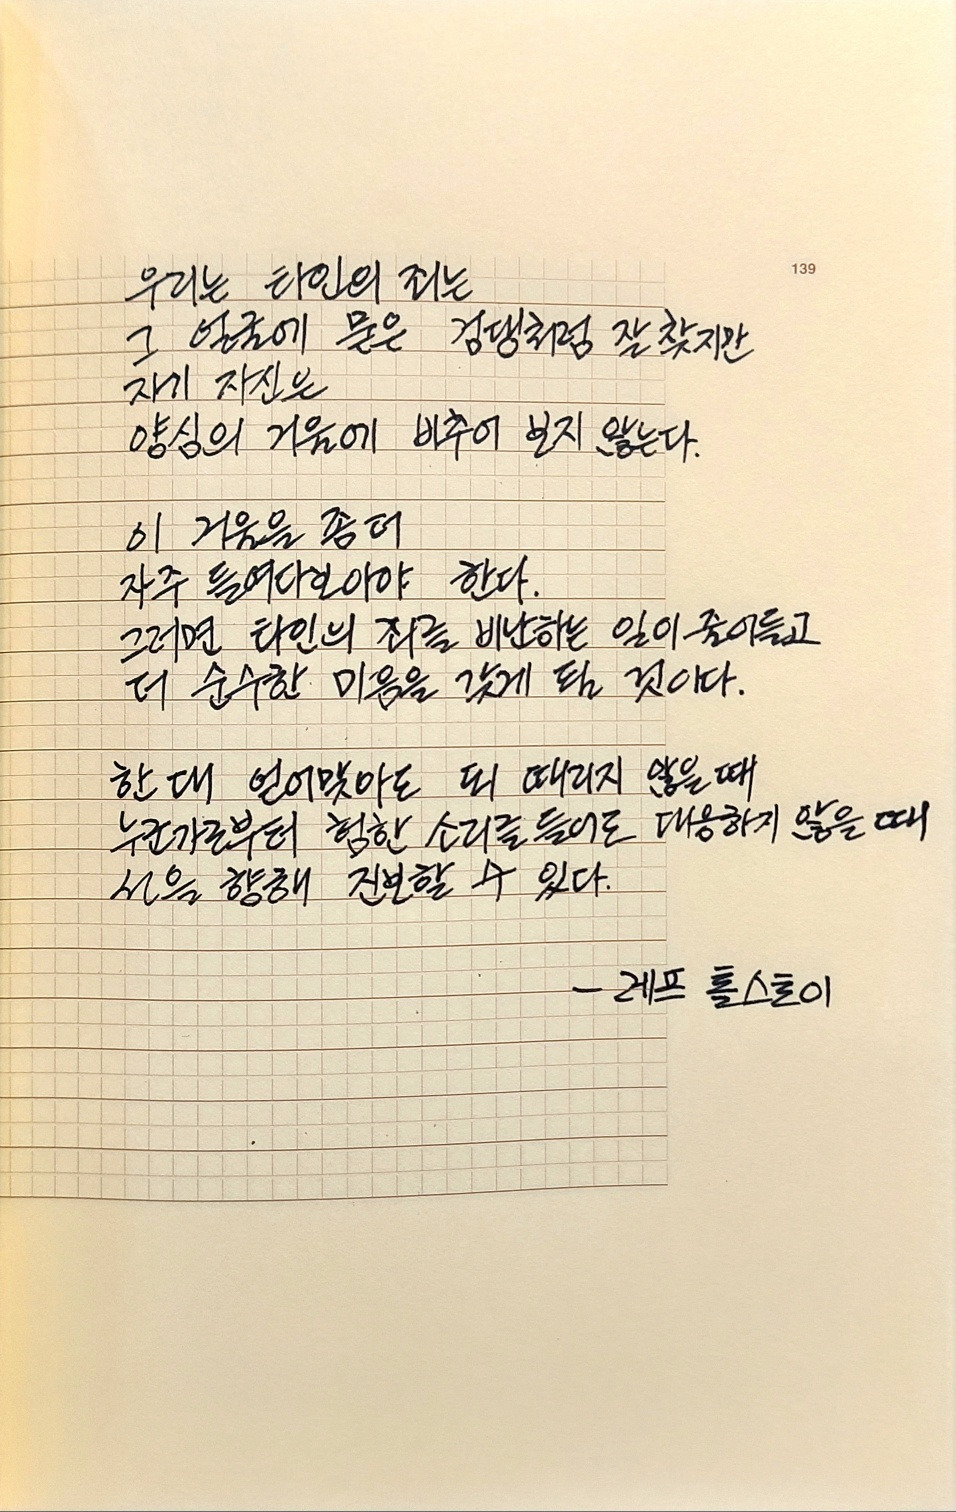 139
우리는 타인의 죄는
그 얼굴에 묻은 검댕처럼 잘 찾지만
자기 자신은
양심의 거울에 비추어 보지 않는다.
이 거울을 좀 더
자주 들여다보아야 한다.
그러면 타인의 죄를 비난하는 일이 줄어들고
더 순수한 마음을 갖게 될 것이다.
한 대 얻어맞아도 되 때리지 않을 때
누군가로부터 험한 소리를 들어도 대응하지 않을 때
선을 향해 진보할 수 있다.
- 레프 톨스토이